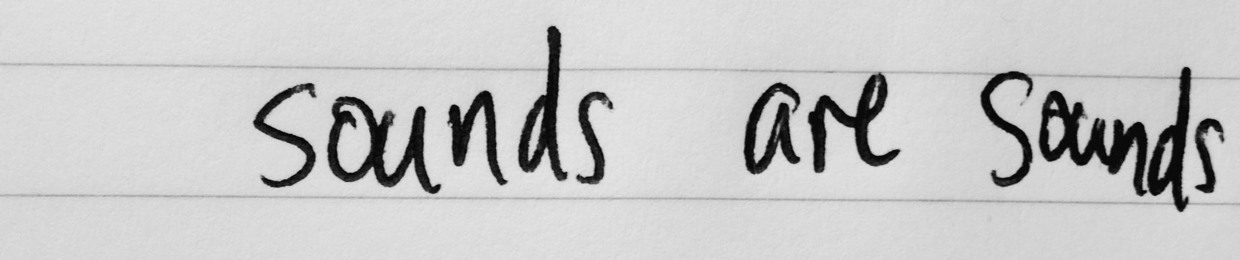 sounds are sounds